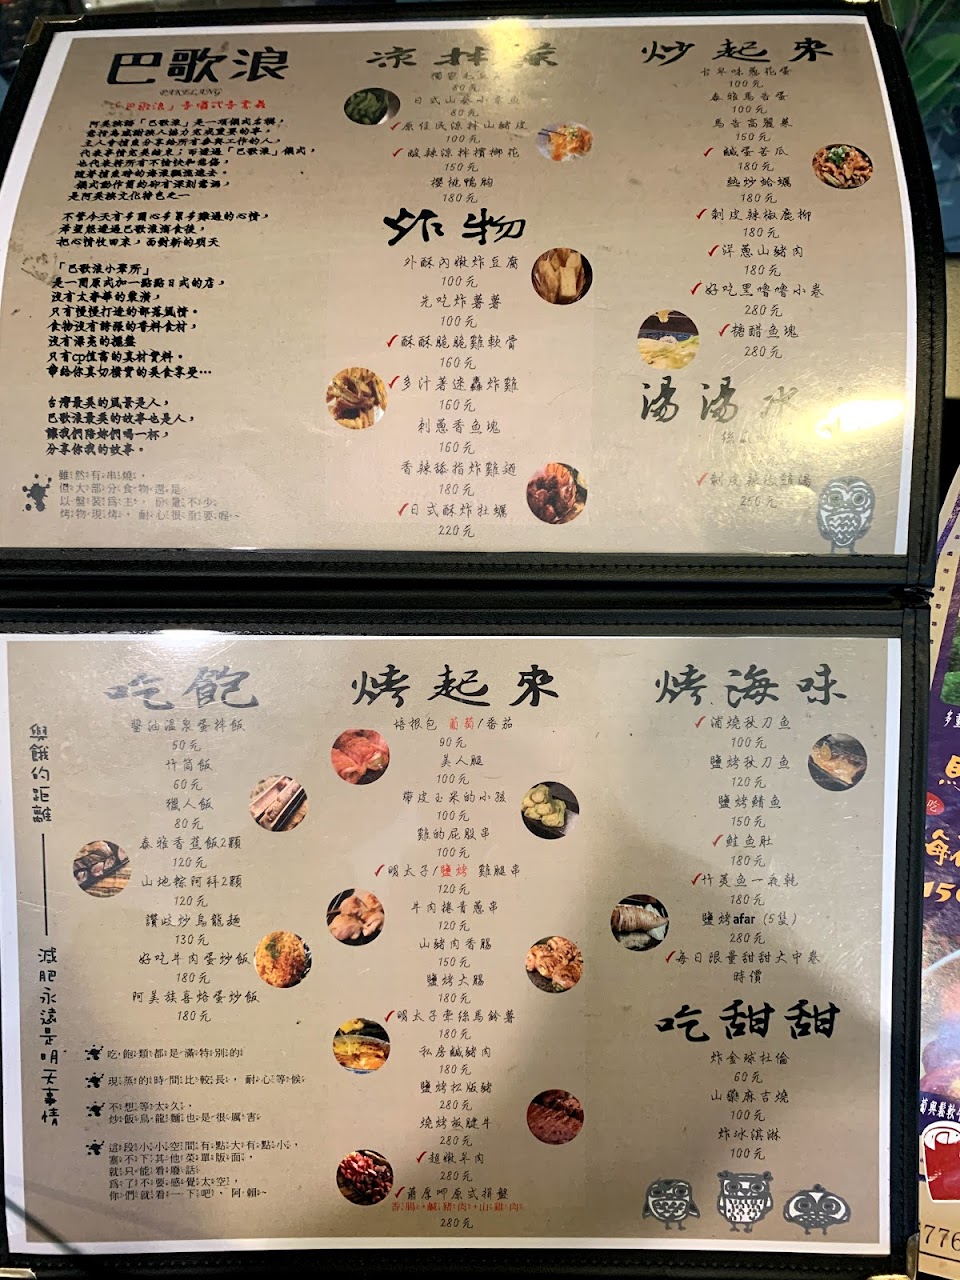 巴歌浪
PAKELANG
「巴歌浪」
阿美族語「巴歌浪」是一項儀式名稱，
意指為感謝族人協力完成重要的事，
主人會捕魚分享給所有參與工作的人，
代表事情完美結束；而透過「巴歌浪」儀式，
也代表將所有不愉快和悲傷，
隨著捕魚時的海浪飄流遠去。
是阿美族文化特色之一
不管今天有多開心多累多難過的心情，
希望能透過巴歌浪酒食後，
把心情收回來，面對新的明天
「巴歌浪小聚所」
是一間原式加一點點日式的店，
沒有太奢華的裝潢，
只有慢慢打造的部落風情。
食物沒有誇張的香料食材，
沒有漂亮的擺盤
只有cp值高的真材實料。
帶給你真切樸實的美食享受…
台灣最美的風景是人，
巴歌浪最美的故事也是人，
讓我們陪妳們喝一杯，
分享你我的故事。
雖然有串燒，
但大部分食物還是
以盤裝為主，份量不少
烤物現烤，耐心很重要喔~
涼拌菜
80元
日式山葵小章魚
80元
✓原住民涼拌山豬皮
100元
✓酸辣涼拌檳榔花
150元
櫻桃鴨胸
180元
炸物
外酥內嫩炸豆腐
100元
先吃炸薯薯
100元
✓酥酥脆脆雞軟骨
160元
✓多汁著迷轟炸雞
160元
刺蔥香魚塊
160元
香辣舔指炸雞翅
180元
✓日式酥炸牡蠣
220元
炒起來
古早味蔥花蛋
100元
泰雅馬告蛋
100元
馬告高麗菜
150元
✓鹹蛋苦瓜
180元
熱炒蛤蠣
180元
✓剝皮辣椒鹿柳
180元
✓洋蔥山豬肉
180元
✓好吃黑嚕嚕小卷
280元
✓糖醋魚塊
280元
湯湯水
✓剝皮辣椒雞湯
250元
與餓的距離——減肥永遠是明天事情
吃飽
醬油溫泉蛋拌飯
50元
竹筒飯
60元
獵人飯
80元
泰雅香蕉飯2顆
120元
山地粽阿拜2顆
120元
讚歧炒烏龍麵
130元
好吃牛肉蛋炒飯
180元
阿美族喜烙蛋炒飯
180元
吃飽類都是滿特別的
現蒸的時間比較長，耐心等候
不想等太久，
炒飯烏龍麵也是很厲害
這段小小空間有點大有點小，
塞不下其他菜單版面，
就只能看廢話
為了不要感覺太空，
你們就看一下吧，阿賴~
烤起來
培根包 葡萄/番茄
90元
美人腿
100元
帶皮玉米的小孩
100元
雞的屁股串
100元
✓明太子/鹽烤 雞腿串
120元
牛肉捲青蔥串
120元
山豬肉香腸
150元
鹽烤大腸
180元
✓明太子牽絲馬鈴薯
180元
私房鹹豬肉
180元
鹽烤松版豬
280元
燒烤板腱牛
280元
✓超嫩羊肉
280元
✓蕭厚呷原式拼盤
香腸，鹹豬肉，山雞肉
280元
烤海味
✓蒲燒秋刀魚
100元
鹽烤秋刀魚
120元
鹽烤鯖魚
150元
✓鮭魚肚
180元
✓竹筴魚一夜乾
180元
鹽烤afar（5隻）
280元
✓每日限量甜甜大中卷
時價
吃甜甜
炸金球杜倫
60元
山藥麻吉燒
100元
炸冰淇淋
100元